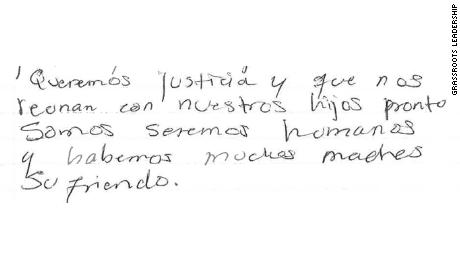 ' Queremós justiciá y que nos
reonan con nuestros hijos pronto
Somos seremos humanos
y habemos muchas madres
Sufriendo.
GRASSROOTS LEADERSHIP